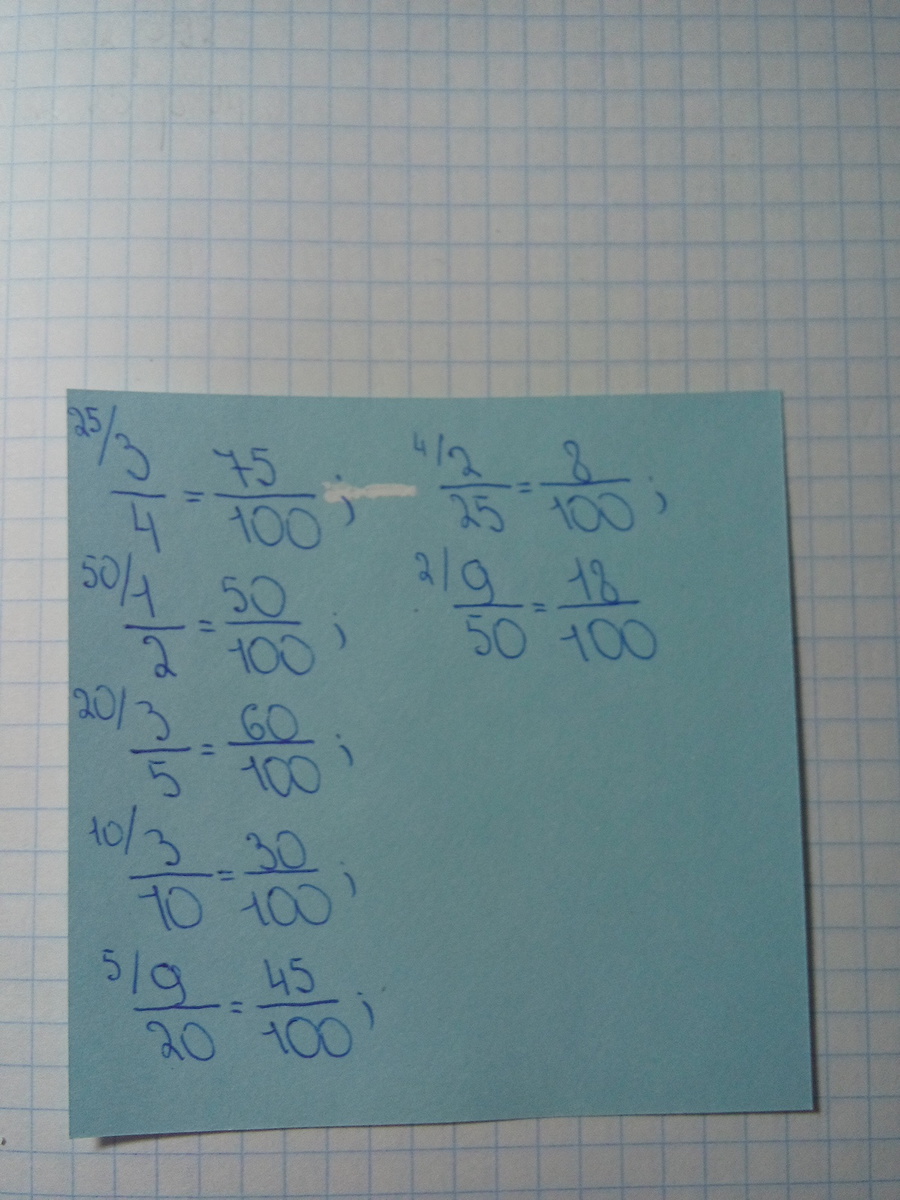 25/ 3/4 = 75/100 ;
50/ 1/2 = 50/100 ;
20/ 3/5 = 60/100 ;
10/ 3/10 = 30/100 ;
5/ 9/20 = 45/100 ;
4/ 2/25 = 8/100 ;
2/ 9/50 = 18/100